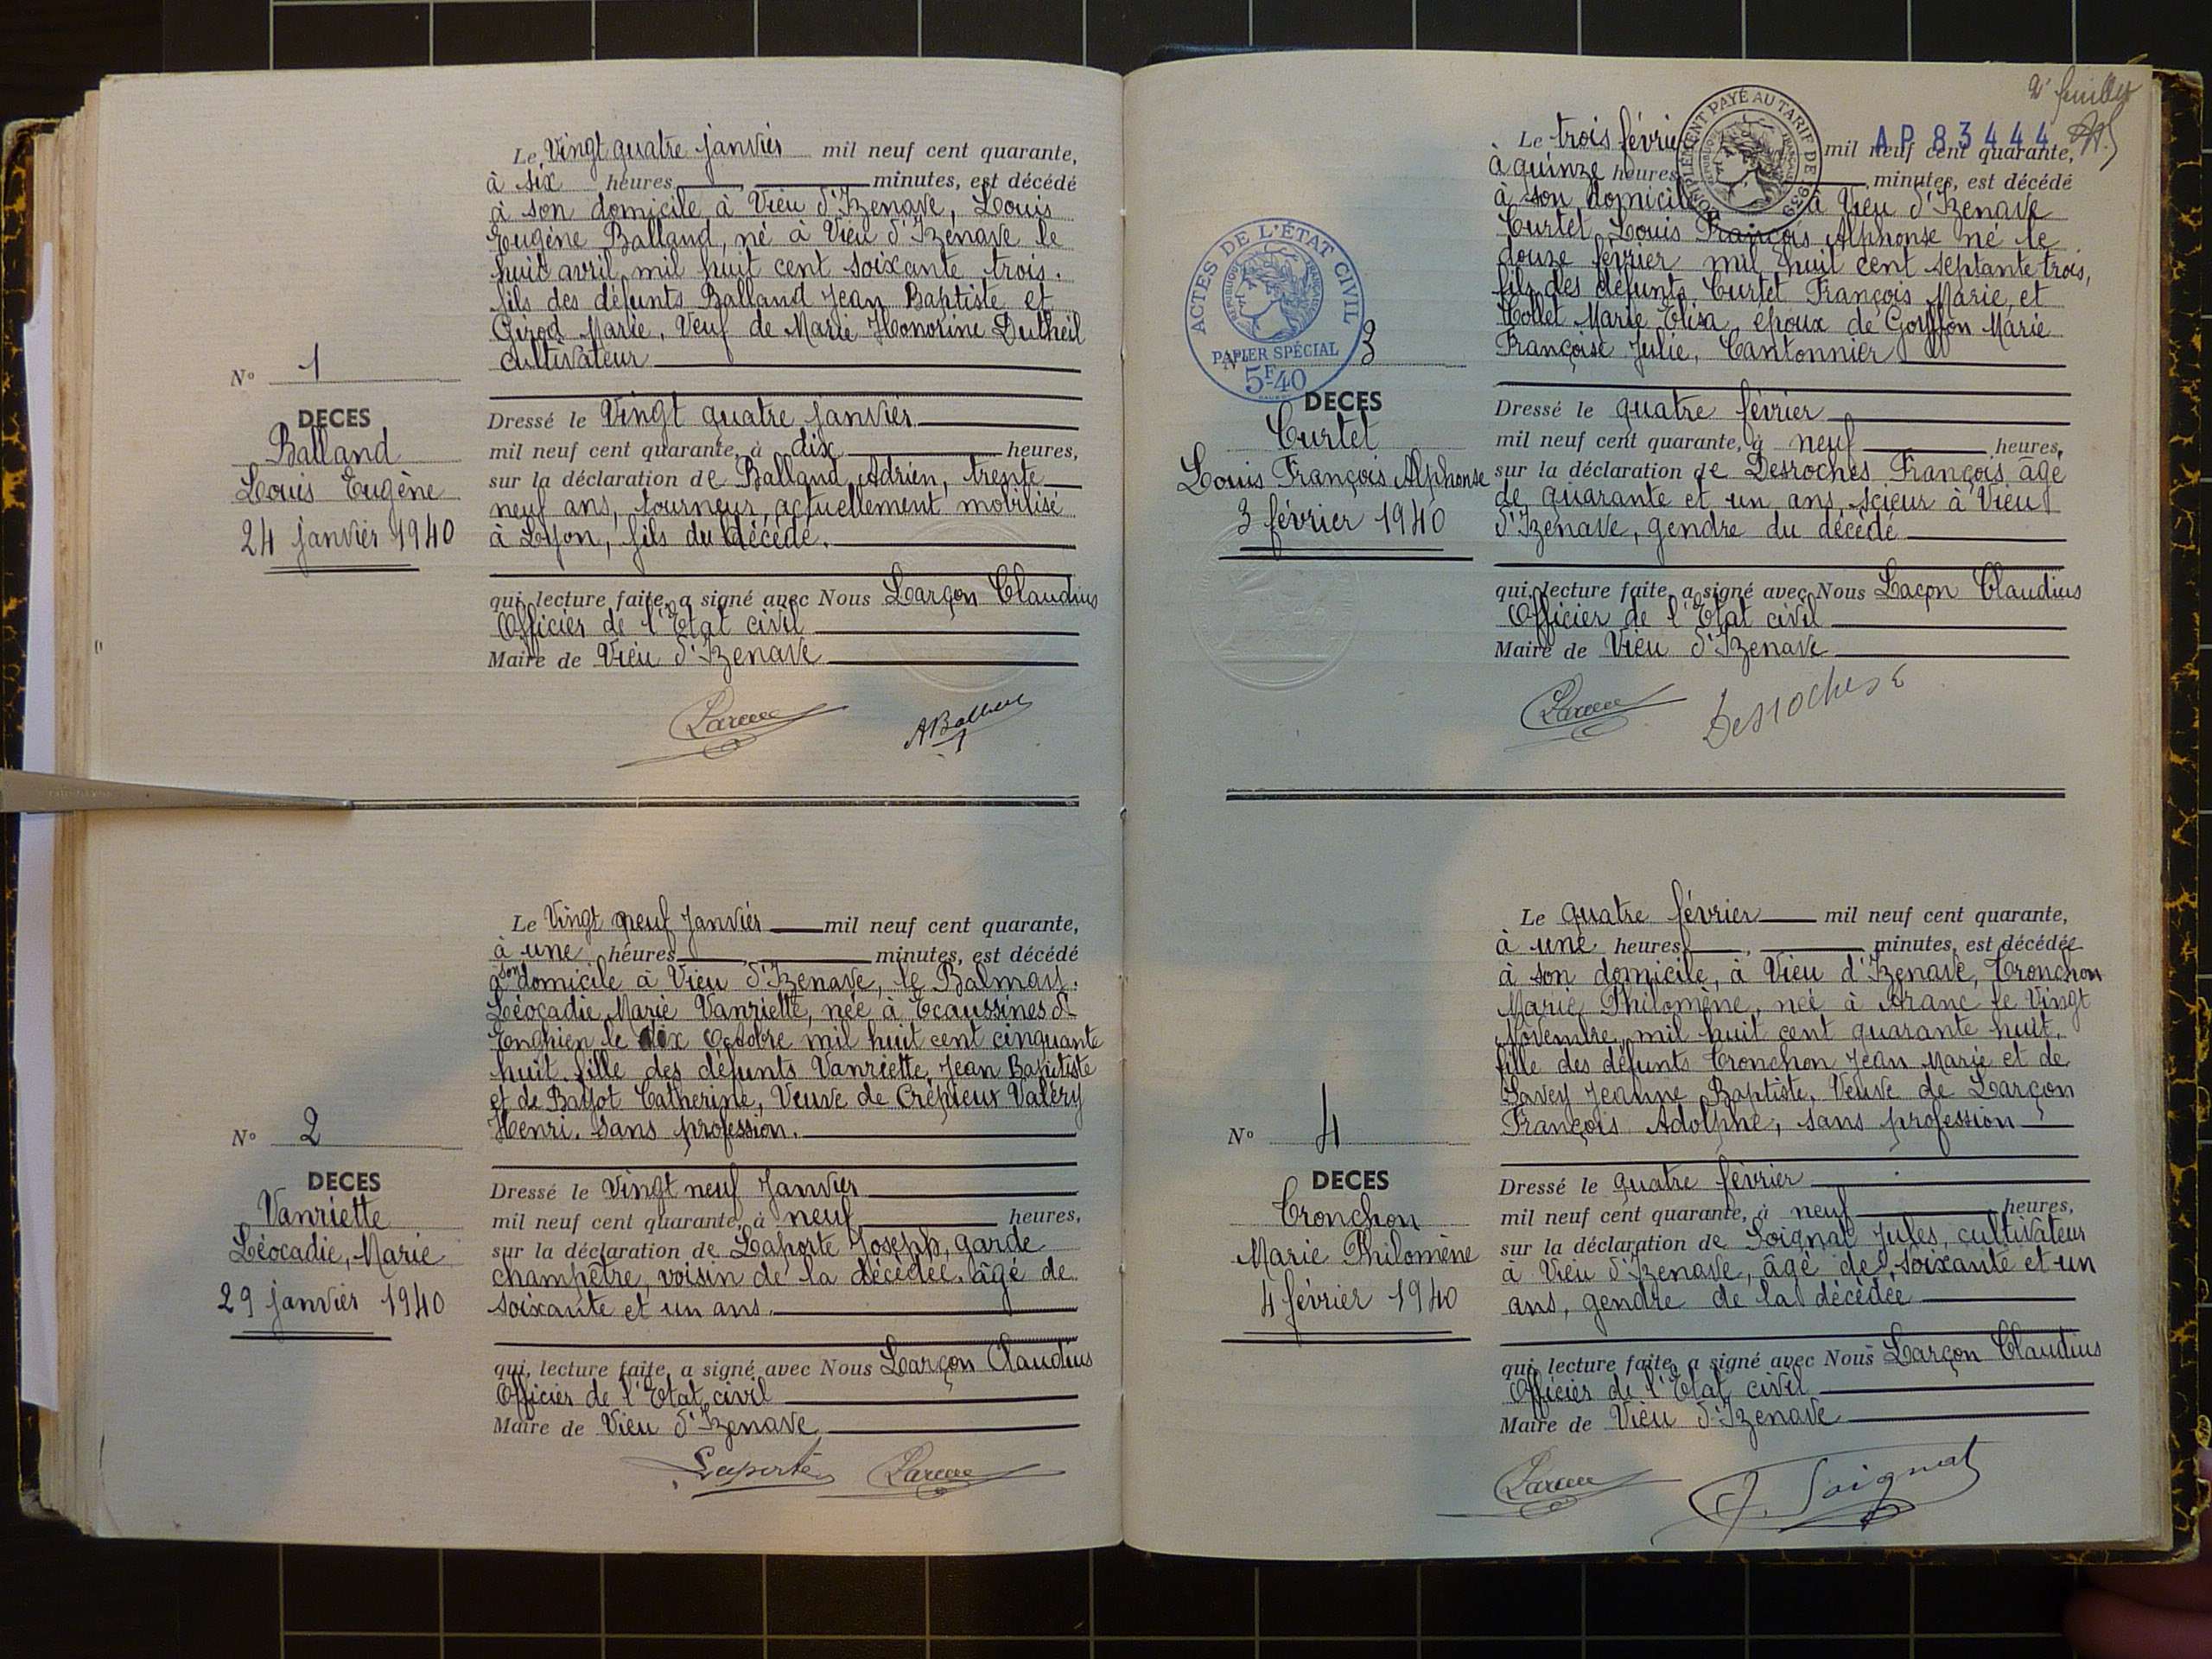 Le Vingt quatre janvier mil neuf cent quarante,
à six heures, minutes, est décédé
à son domicile à Vieu d'Izenave, Louis
Eugène Balland, né à Vieu d'Izenave le
huit avril mil huit cent soixante trois.
fils des défunts Balland Jean Baptiste et
Girod Marie, Veuf de Marie Honorine Dutheil
cultivateur
N° 1
DECES
Balland
Louis Eugène
24 janvier 1940
Dressé le Vingt quatre janvier
mil neuf cent quarante, à dix heures,
sur la déclaration de Balland Adrien, trente
neuf ans, tourneur, actuellement mobilisé
à Lyon, fils du décédé.
qui, lecture faite, a signé avec Nous Larçon Claudius
Officier de l'Etat civil
Maire de Vieu d'Izenave
Le Vingt neuf Janvier mil neuf cent quarante,
à une heures minutes, est décédé
à son domicile à Vieu d'Izenave, le Balmay.
Léocadie Marie Vanriette, née à Ecaussines d'
Enghien le dix Octobre mil huit cent cinquante
huit, fille des défunts Vanriette, Jean Baptiste
et de Catherine, Veuve de Crépieux Valéry
Henri. Sans profession.
N° 2
DECES
Vanriette
Léocadie, Marie
29 janvier 1940
Dressé le Vingt neuf Janvier
mil neuf cent quarante, à neuf heures,
sur la déclaration de Laporte Joseph, garde
champêtre, voisin de la décédée, âgé de
soixante et un ans.
qui, lecture faite, a signé avec Nous Larçon Claudius
Officier de l'Etat civil
Maire de Vieu d'Izenave
Laporte
2e feuillet
AP 83444
COMPLÉMENT PAYÉ AU TARIF DE 1939
Le trois février mil neuf cent quarante,
à quinze heures minutes, est décédé
à son domicile à Vieu d'Izenave
Curtet Louis François Alphonse né le
douze février mil huit cent septante trois,
fils des défunts Curtet François Marie, et
Hollet Marie Elisa, époux de Goyffon Marie
Françoise Julie, Cantonnier
ACTES DE L'ÉTAT CIVIL
RÉPUBLIQUE FRANÇAISE
PAPIER SPÉCIAL
5F40
N° 3
DECES
Curtet
Louis François Alphonse
3 février 1940
Dressé le quatre février
mil neuf cent quarante, à neuf heures,
sur la déclaration de Desroches François, âgé
de quarante et un ans, scieur à Vieu
d'Izenave, gendre du décédé
qui, lecture faite, a signé avec Nous Laçon Claudius
Officier de l'Etat civil
Maire de Vieu d'Izenave
Desroches
Le quatre février mil neuf cent quarante,
à une heures, minutes, est décédée
à son domicile, à Vieu d'Izenave, Tronchon
Marie Philomène, née à Aranc le Vingt
Novembre, mil huit cent quarante huit,
fille des défunts Tronchon Jean Marie et de
Savey Jeanne Baptiste, Veuve de Larçon
François Adolphe, sans profession
N° 4
DECES
Tronchon
Marie Philomène
4 février 1940
Dressé le quatre février
mil neuf cent quarante, à neuf heures,
sur la déclaration de Soignat Jules, cultivateur
à Vieu d'Izenave, âgé de soixante et un
ans, gendre de la décédée
qui, lecture faite, a signé avec Nous Larçon Claudius
Officier de l'Etat civil
Maire de Vieu d'Izenave
J. Soignat